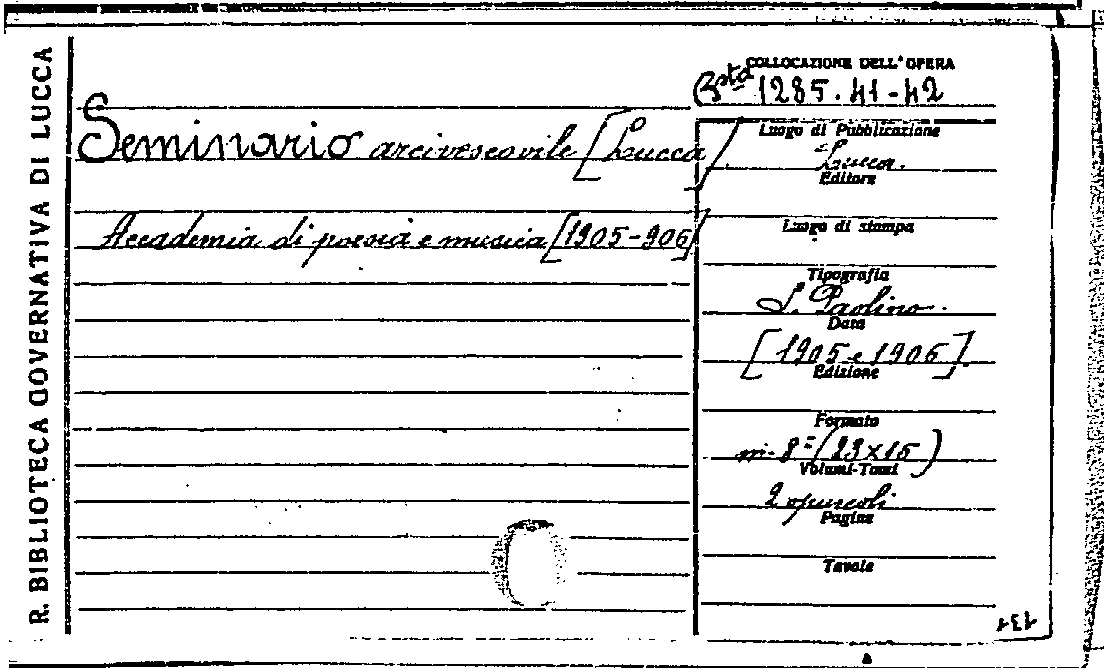 R. BIBLIOTECA GOVERNATIVA DI LUCCA
COLLOCAZIONE DELL'OPERA
Bsta 1285.41-42
Seminario arcivescovile [Lucca]
Accademia di poesia e musica [1905-906]
Luogo di Pubblicazione
Lucca.
Editore
Luogo di stampa
Tipografia
S. Paolino.
Data
[1905 e 1906].
Edizione
Formato
in-8º (23x15)
Volumi-Tomi
2 opuscoli
Pagine
Tavole
131